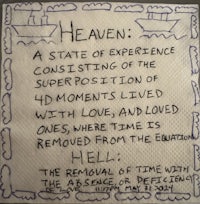 HEAVEN:
A STATE OF EXPERIENCE
CONSISTING OF THE
SUPERPOSITION OF
4D MOMENTS LIVED
WITH LOVE, AND LOVED
ONES, WHERE TIME IS
REMOVED FROM THE EQUATION
HELL:
THE REMOVAL OF TIME WITH
THE ABSENCE, OR DEFICIENCY
OF LOVE. MAY 31 2024